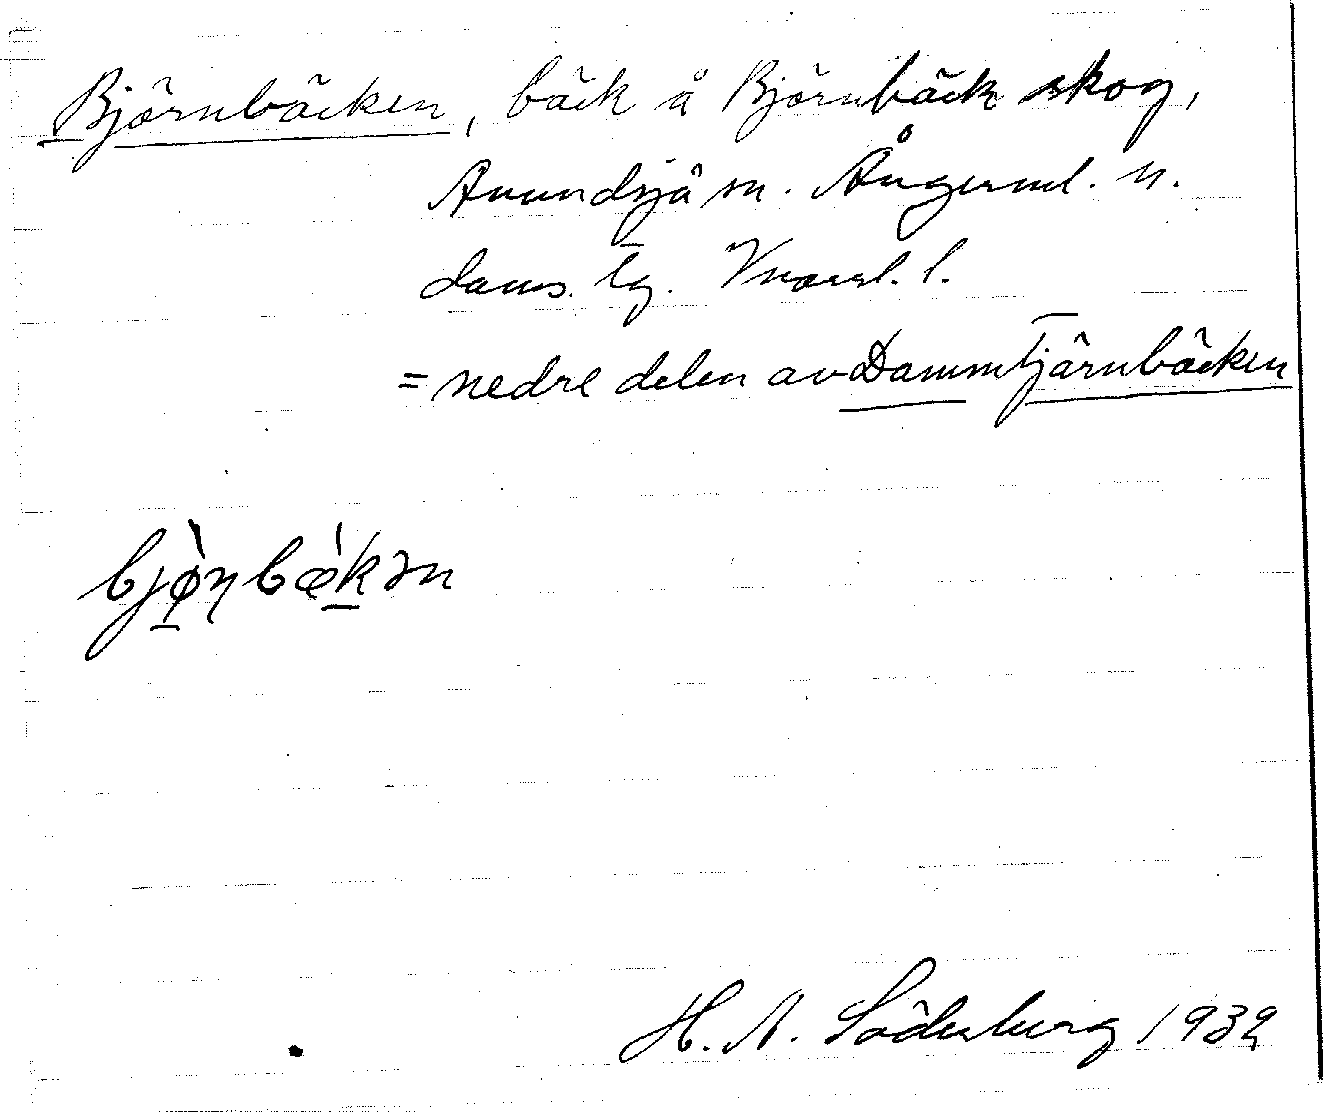 Björnbäcken, bäck å Björnbäck skog,
Anundsjö sn. Ångerml. n.
doms. lg. Vnorrl. l.
= nedre delen av Dammtjärnbäcken
bjø̀ɳbæ̀kən
H. A. Söderberg 1932